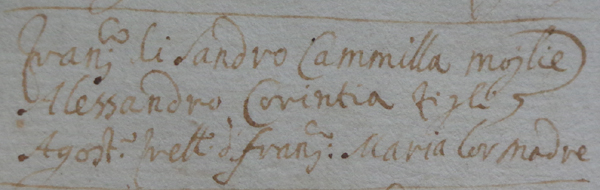 Fran:co Lisandro Cammilla moglie
Alessandro, Corintia figli
Agost:o frell:o d. Franc:o: Maria lor madre